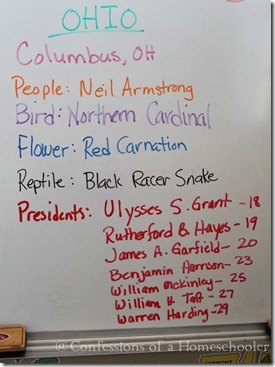 OHIO
Columbus, OH
People: Neil Armstrong
Bird: Northern Cardinal
Flower: Red Carnation
Reptile: Black Racer Snake
Presidents: Ulysses S. Grant - 18
Rutherford B Hayes - 19
James A. Garfield - 20
Benjamin Harrison - 23
William McKinley - 25
William H. Taft - 27
Warren Harding - 29
@ Confessions of a Homeschooler